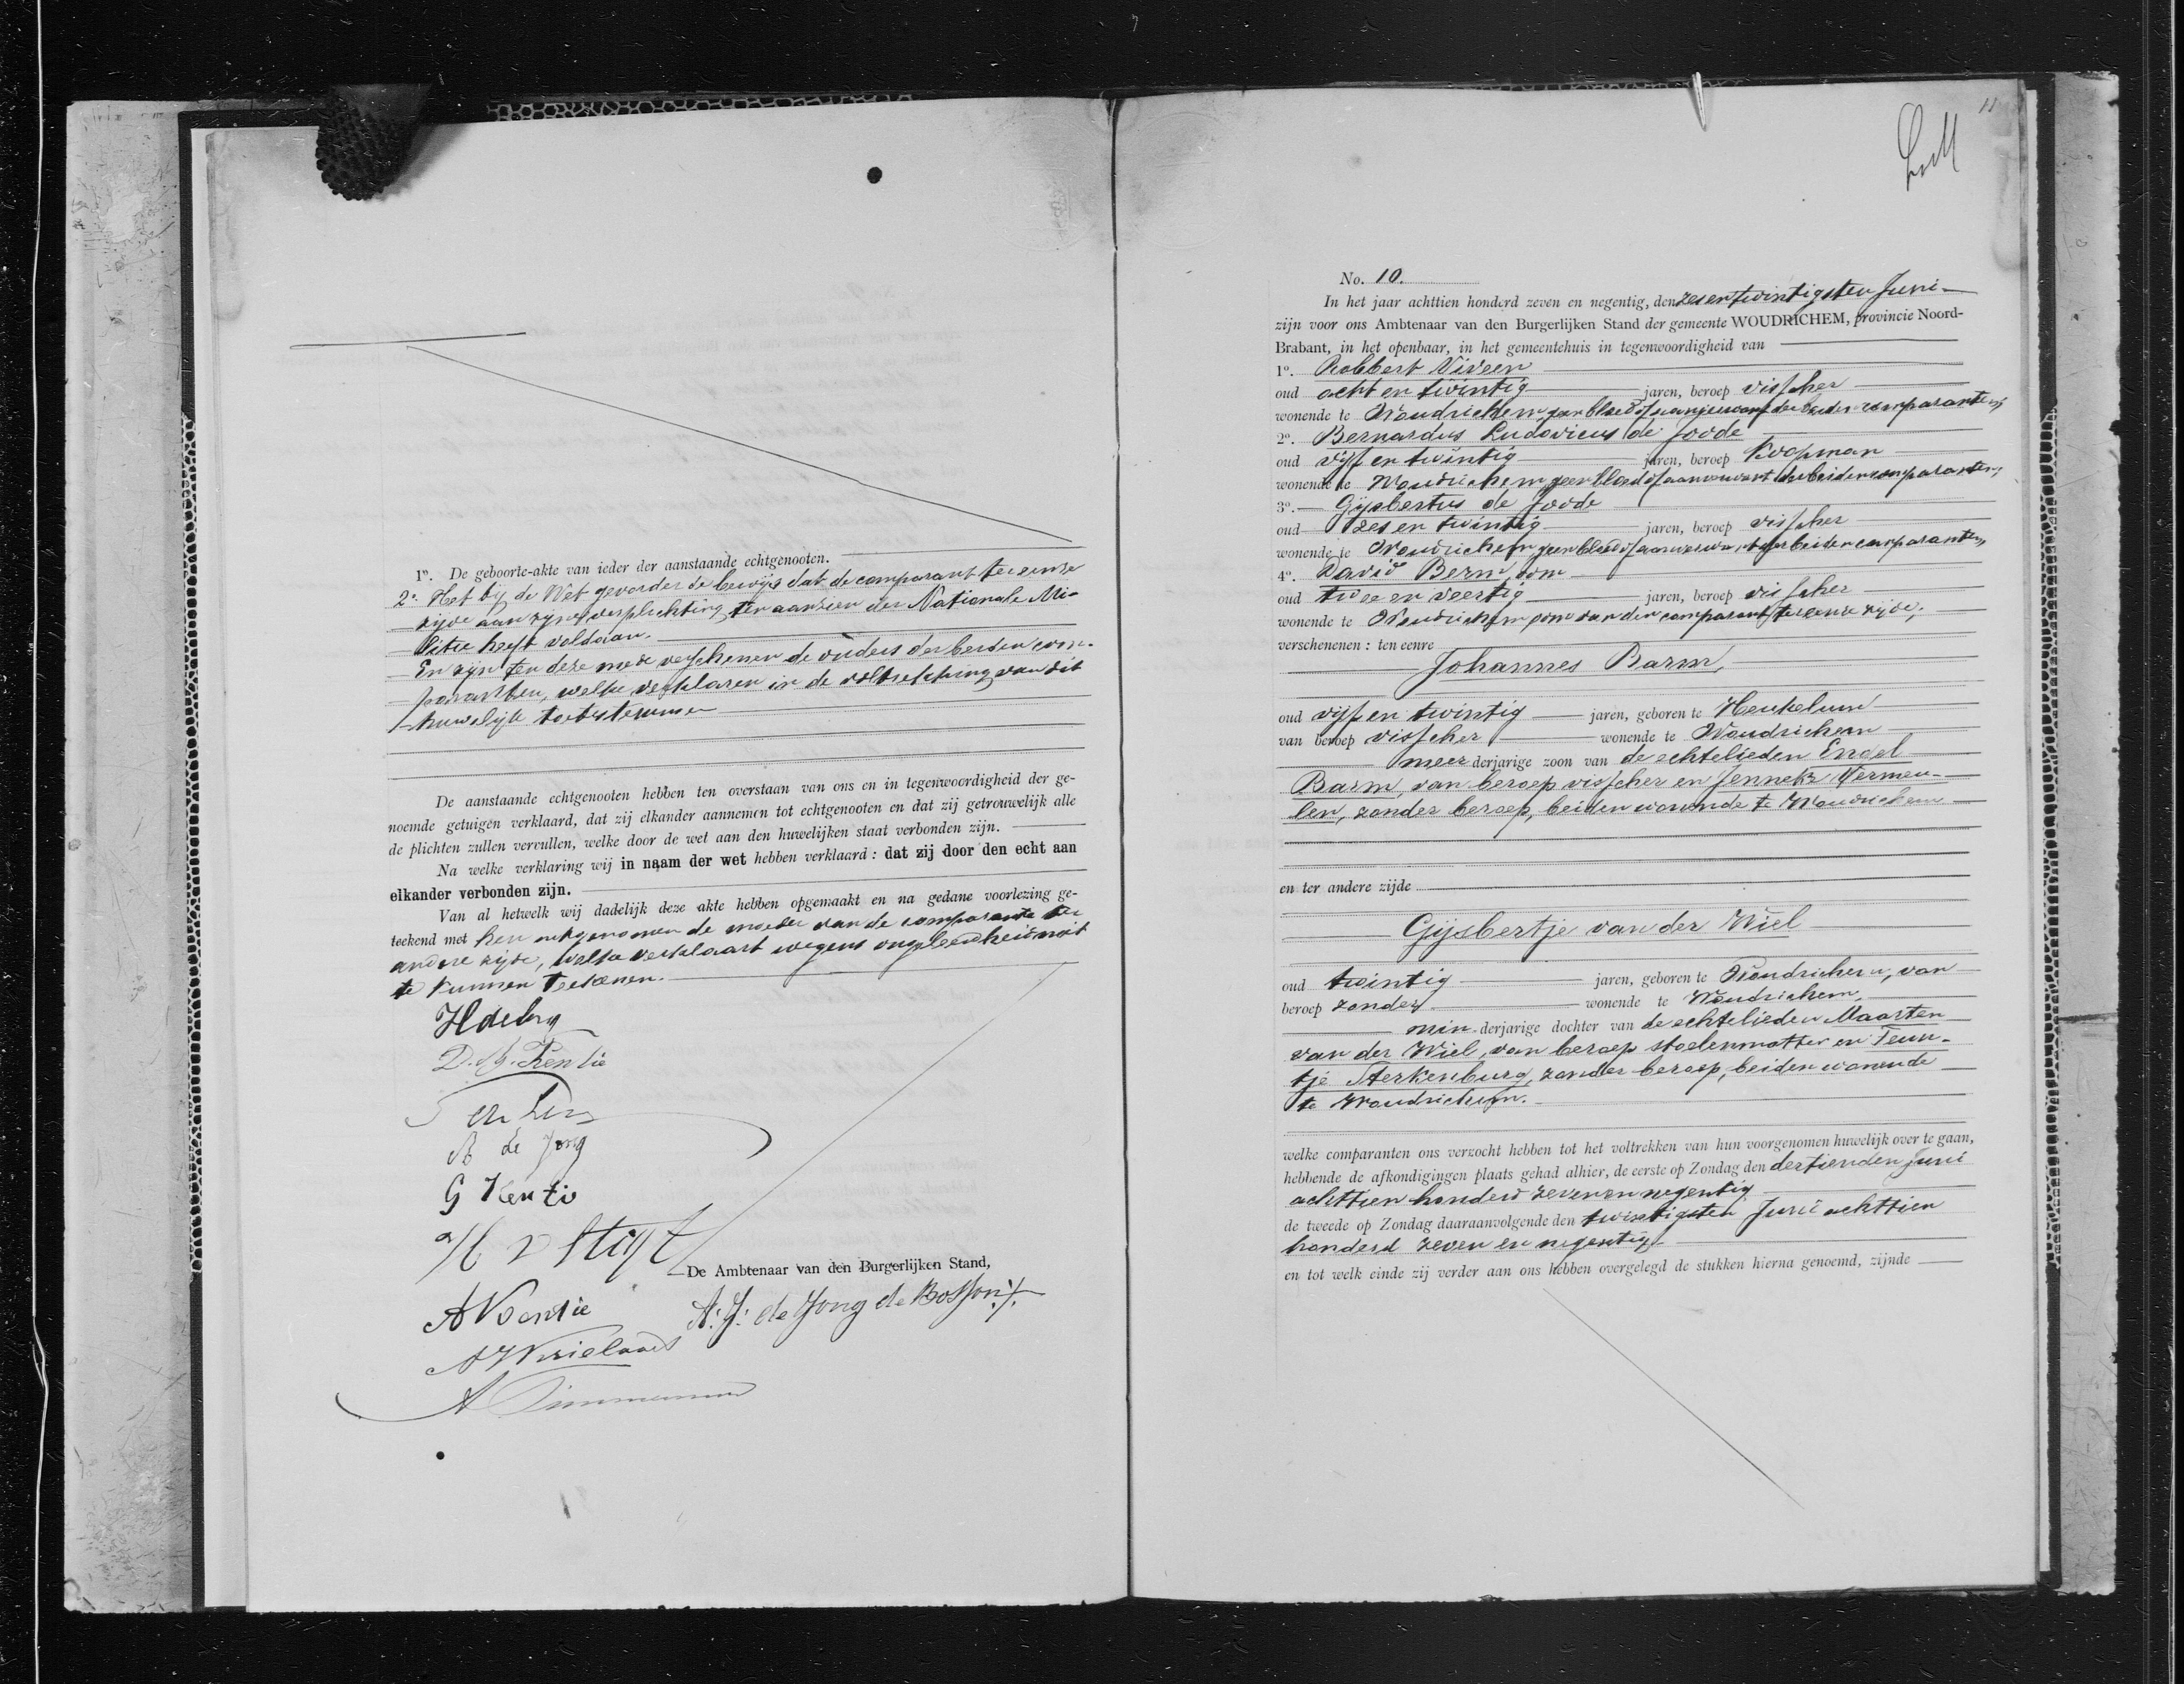 1º. De geboorte-akte van ieder der aanstaande echtgenooten.
2º. Het bij de Wet gevorderde bewijs dat de comparant ter eenre
zijde aan zijne verplichting ten aanzien der Nationale Mi-
litie heeft voldaan.
En zijn ten deze mede verschenen de ouders der beiden com-
paranten, welke verklaren in de voltrekking van dit
huwelijk toetestemmen
De aanstaande echtgenooten hebben ten overstaan van ons en in tegenwoordigheid der ge-
noemde getuigen verklaard, dat zij elkander aannemen tot echtgenooten en dat zij getrouwelijk alle
de plichten zullen vervullen, welke door de wet aan den huwelijken staat verbonden zijn.
Na welke verklaring wij in naam der wet hebben verklaard: dat zij door den echt aan
elkander verbonden zijn.
Van al hetwelk wij dadelijk deze akte hebben opgemaakt en na gedane voorlezing ge-
teekend met hen uitgenomen de moeder van de comparante ter
andere zijde, welke verklaart wegens ongeleerdheid niet
te kunnen teekenen.
D. Kentie
de Jong
G Kentie
v Stigt
De Ambtenaar van den Burgerlijken Stand,
A Kentie
A. J. de Jong de Bosson
A Timmerman
11
No. 10.
In het jaar achttien honderd zeven en negentig, den zesentwintigsten Juni
zijn voor ons Ambtenaar van den Burgerlijken Stand der gemeente WOUDRICHEM, provincie Noord-
Brabant, in het openbaar, in het gemeentehuis in tegenwoordigheid van
1º. Robbert Viveen
oud acht en twintig jaren, beroep visscher
wonende te Woudrichem, geen bloed of aanverwant der beiden comparanten,
2º. Bernardus Ludovicus de Joode
oud vijf en twintig jaren, beroep Koopman
wonende te Woudrichem, geen bloed of aanverwant der beiden comparanten,
3º. Gijsbertus de Joode
oud zes en twintig jaren, beroep visscher
wonende te Woudrichem, geen bloed of aanverwant der beiden comparanten,
4º. David Berm, oom
oud twee en veertig jaren, beroep visscher
wonende te Woudrichem, oom van den comparant ter eenre zijde,
verschenenen: ten eenre
Johannes Barm,
oud vijf en twintig jaren, geboren te Heukelum
van beroep visscher wonende te Woudrichem
meerderjarige zoon van de echtelieden Engel
Barm, van beroep visscher en Jenneke Vermeu-
len, zonder beroep, beiden wonende te Woudrichem
en ter andere zijde
Gijsbertje van der Wiel
oud twintig jaren, geboren te Woudrichem, van
beroep zonder wonende te Woudrichem,
min-derjarige dochter van de echtelieden Maarten
van der Wiel, van beroep stoelenmatter en Teun-
tje Sterkenburg, zonder beroep, beiden wonende
te Woudrichem.
welke comparanten ons verzocht hebben tot het voltrekken van hun voorgenomen huwelijk over te gaan,
hebbende de afkondigingen plaats gehad alhier, de eerste op Zondag den dertienden Juni
achttien honderd zeven en negentig
de tweede op Zondag daaraanvolgende den twintigsten Juni achttien
honderd zeven en negentig
en tot welk einde zij verder aan ons hebben overgelegd de stukken hierna genoemd, zijnde